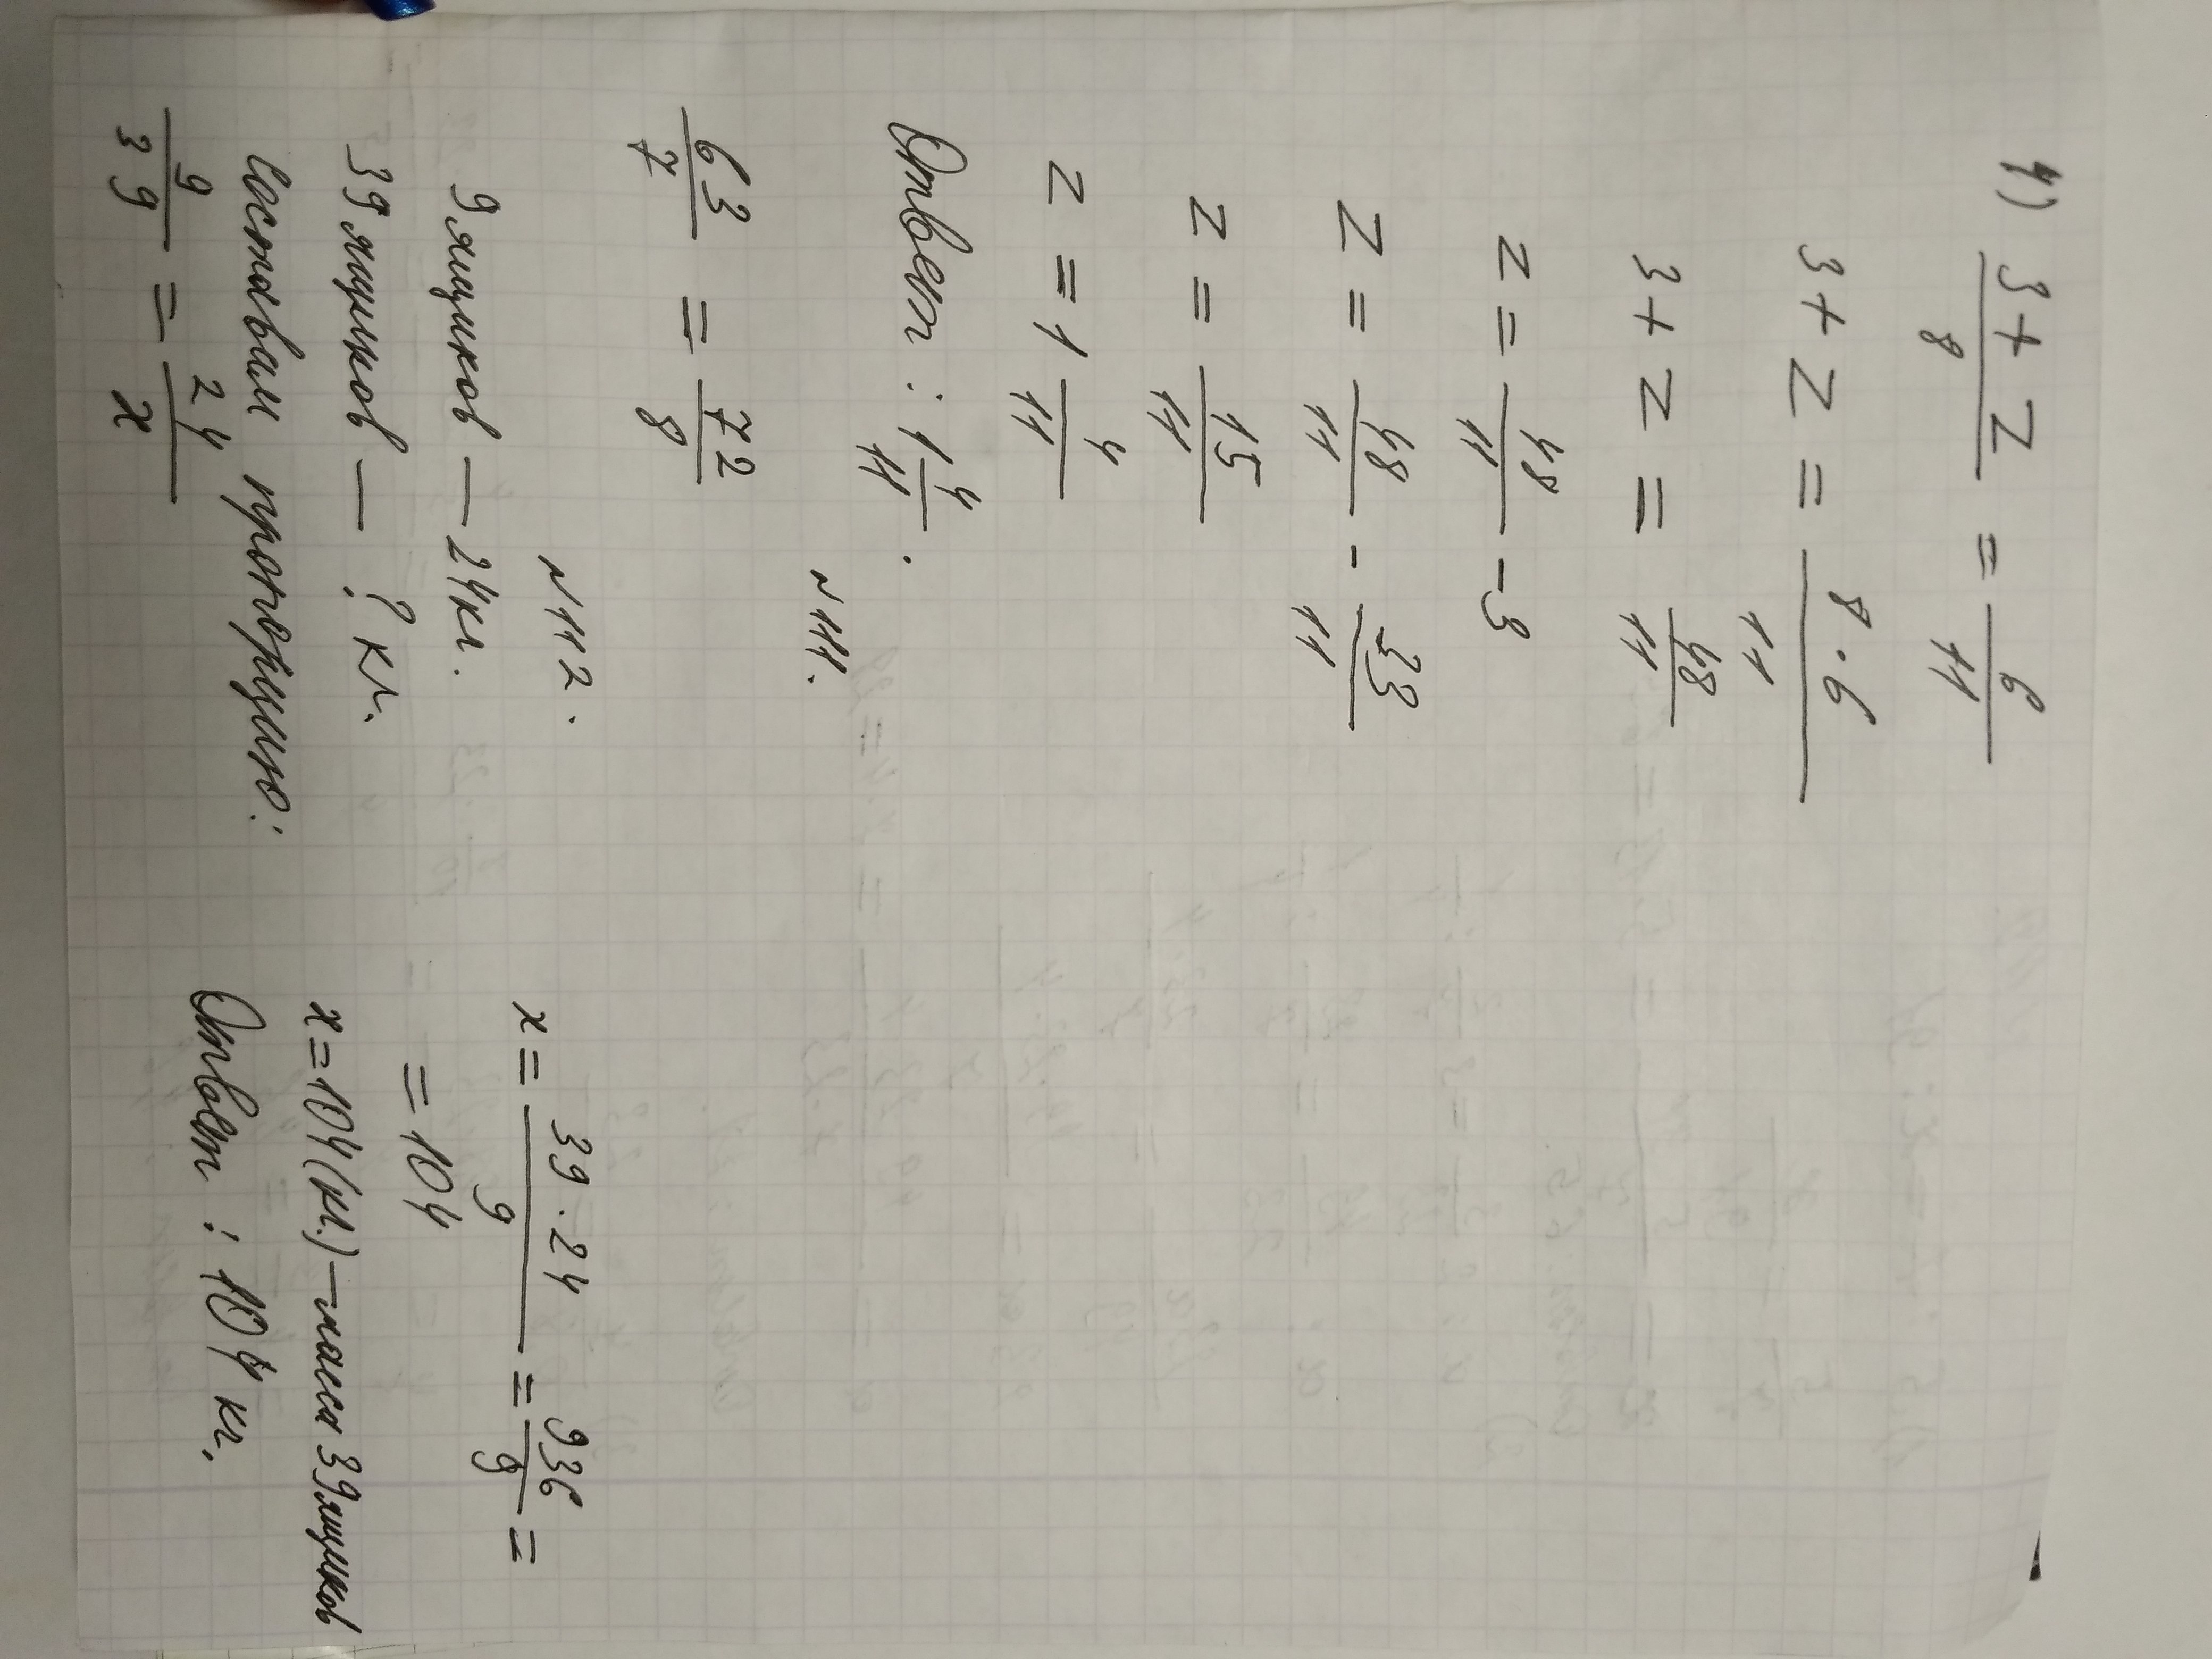 4) (3+z)/8 = 6/11
3+z = 8·6/11
3+z = 48/11
z = 48/11 - 3
z = 48/11 - 33/11
z = 15/11
z = 1 4/11
Ответ: 1 4/11.
N111.
63/7 = 72/8
N112.
9 ящиков — 24 кг.
39 ящиков — ? кг.
Составим пропорцию:
9/39 = 24/x
x = 39·24/9 = 936/9 =
= 104
x=104(кг.) — масса 39 ящиков
Ответ: 104 кг.